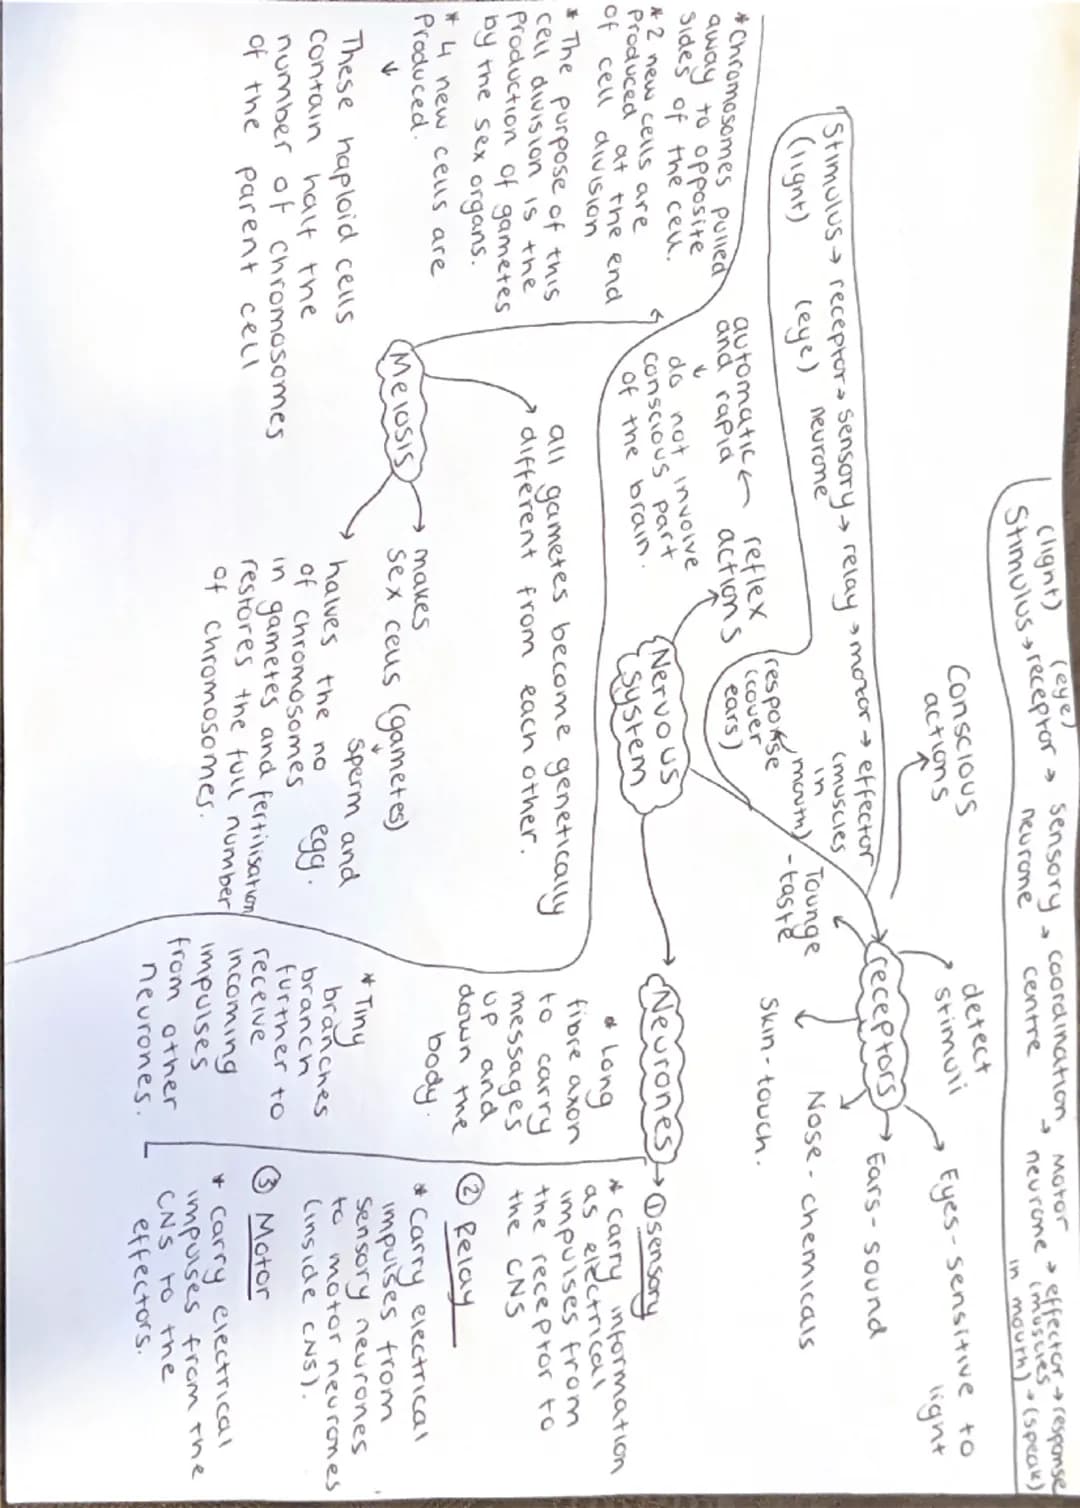 (light) (eye)
Stimulus → receptor → sensory → coordination → Motor → effector → response
neurone centre neurone (muscles → (speak)
in mouth)
Conscious
actions
detect
stimuli
Eyes - sensitive to
light
Stimulus → receptor → sensory → relay → motor → effector
(light) (eye) neurone (muscles
in
mouth)
response
(cover
ears)
receptors
Ears - sound
Nose - chemicals
Tounge
- taste
Skin - touch.
reflex
actions
automatic
and rapid
do not involve
conscious part
of the brain.
Nervous
system
Neurones
* Long
fibre axon
to carry
messages
up and
down the
body.
* Tiny
branches
branch
further to
receive
incoming
impulses
from other
neurones.
① Sensory
* Carry information
as electrical
impulses from
the receptor to
the CNS
② Relay
* Carry electrical
impulses from
sensory neurones
to motor neurones
(inside CNS).
③ Motor
* Carry electrical
impulses from the
CNS to the
effectors.
* Chromosomes pulled
away to opposite
sides of the cell.
* 2 new cells are
produced at the end
of cell division
* The purpose of this
cell division is the
production of gametes
by the sex organs.
* 4 new cells are
produced.
↓
These haploid cells
contain half the
number of chromosomes
of the parent cell
Meiosis
all gametes become genetically
different from each other.
makes
sex cells (gametes)
↓
sperm and
egg.
halves the no
of chromosomes
in gametes and fertilisation
restores the full number
of chromosomes.